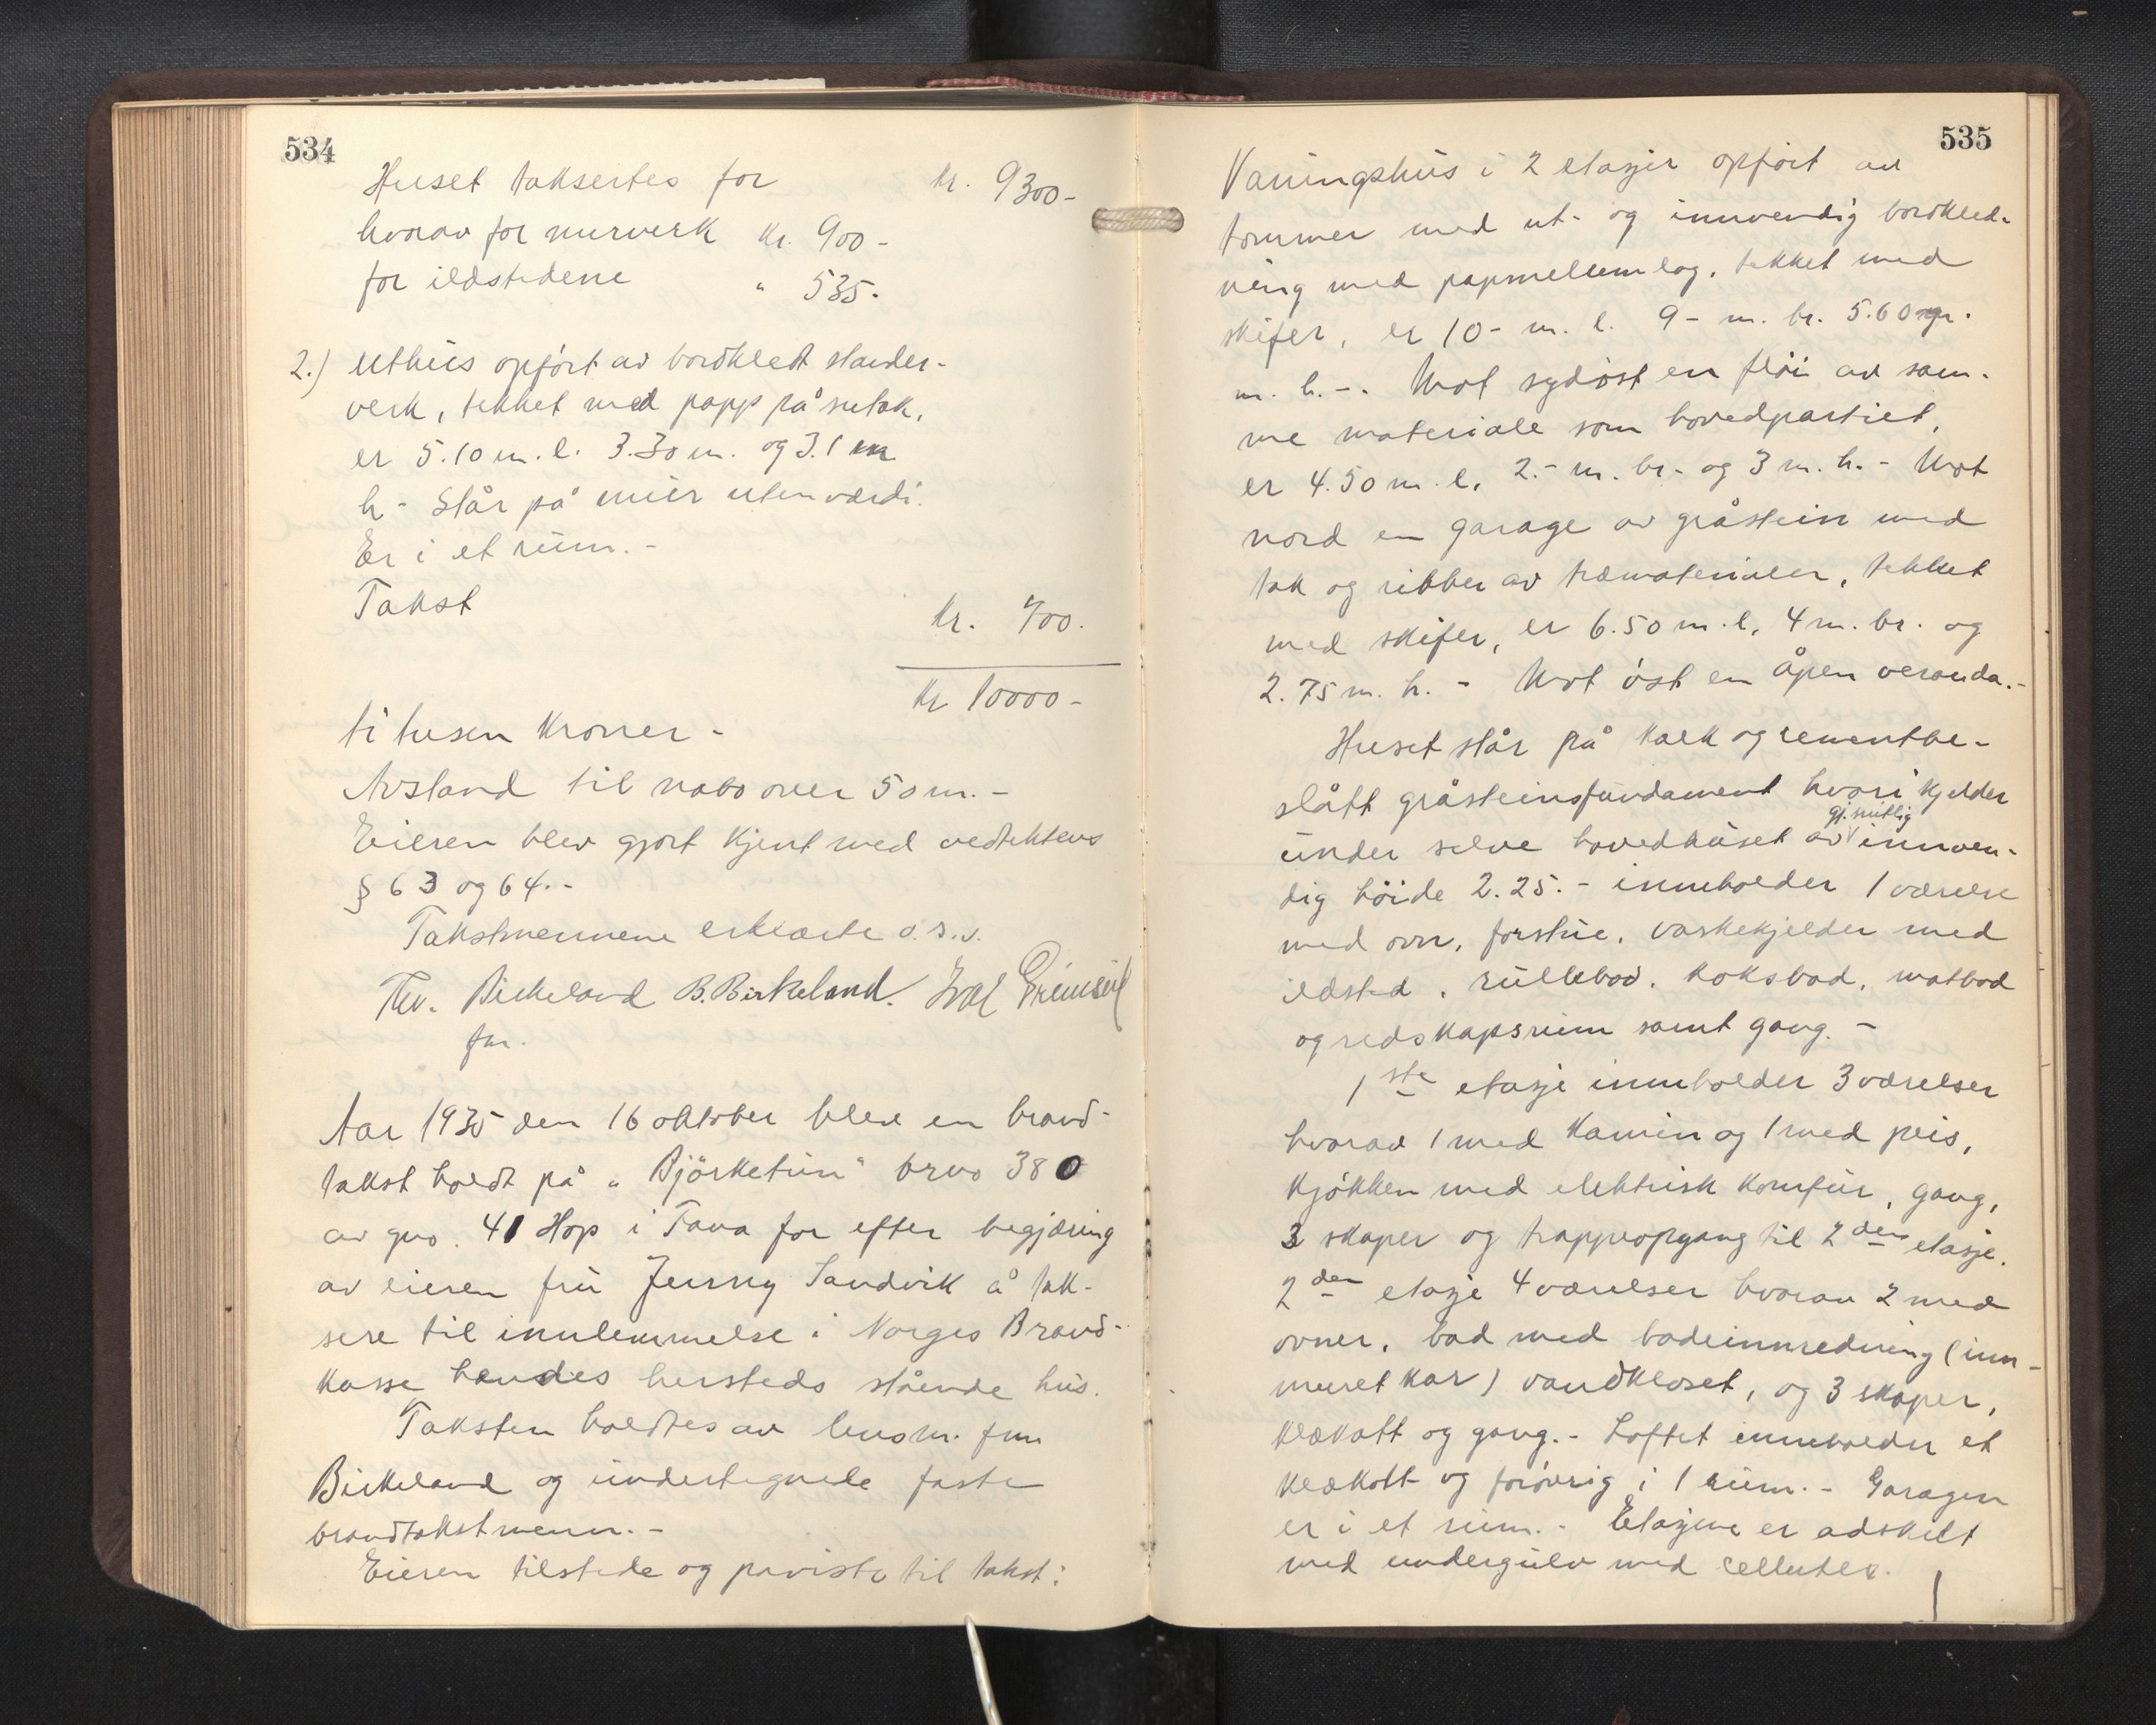 534
Huset taksertes for kr. 9300-
hvorav for murverk kr. 900-
for ildstedene " 535.
2.) Uthus opført av bordkledt stender-
verk, tekket med papp på sutak,
er 5.10 m. l. 3.30 m. og 3.1 m
h - Står på mur uten værdi.
Er i et rum.-
Takst kr. 700.
Kr 10000-
ti tusen kroner -
Avstand til nabo over 50 m. -
Eieren blev gjort kjent med vedtektens
§ 63 og 64.-
Takstmennene erklærte o.s.v.
Birkeland B. Birkeland.
fm.
Aar 1935 den 16 oktober blev en brand-
takst holdt på "Björketun" brno 380
av gno. 41 Hop i Fana for efter begjæring
av eieren fru Jenny Sandvik å tak-
sere til innlemmelse i Norges Brand-
kasse hendes hersteds stående hus.
Taksten holdtes av lensm. fm
Birkeland og undertegnede faste
brandtakstmenn. -
Eieren tilstede og paviste til takst:
535
Vaningshus i 2 etasjer opført av
tømmer med ut- og innvendig bordkled-
ning med papmellemlag, tekket med
skifer, er 10- m. l. 9- m. br. 5.60
m. h.-. Mot sydøst en fløi av sam-
me materiale som hovedpartiet,
er 4.50 m. l. 2.- m. br.- og 3 m. h. - Mot
nord en garage av gråstein med
tak og ribber av træmaterialer, tekket
med skifer, er 6.50 m. l, 4 m. br. og
2.75 m. h. - Mot øst en åpen veranda.-
Huset står på kalk og sementbe-
slått gråsteinsfundament hvori kjelder
under selve hovedhuset av gj.snitlig innven-
dig höide 2.25.- inneholder 1 værelse
med ovn, forstue, vaskekjelder med
ildsted, rullebod, koksbod, matbod
og redskapsrum samt gang. -
1ste etasje inneholder 3 værelser
hvorav 1 med kamin og 1 med peis,
kjøkken med elektrisk komfur, gang,
3 skaper og trappeopgang til 2den etasje.
2den etasje 4 værelser hvorav 2 med
ovner, bad med badeinnredning (inn-
muret kar) vandkloset, og 3 skaper,
klækott og gang.- Loftet inneholder et
klækott og forøvrig i 1 rum. - Garagen
er i et rum.- Etasjene er adskilt
med undergulv med cellutex.